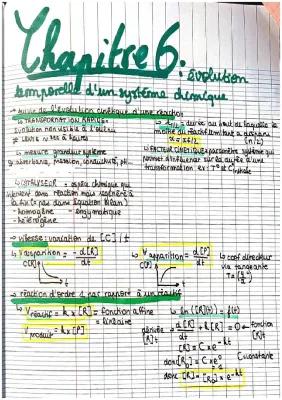 Chapitre 6: évolution
temporelle d'un système chimique
suivi de l'évolution cinétique d'une réaction
↳ TRANSFORMATION RAPIDE:
évolution non visible à l'œil nu
≠ LENTE
↳ mesure grandeur système
absorbance, pression, conductivité, pH...
t1/2: durée au bout de laquelle la
moitié du réactif limitant a disparu
x = xf/2
(n/2)
↳ FACTEUR CINETIQUE: paramètre système qui
permet d'influencer sur la durée d'une
transformation ex: T° et C initiale
CATALYSEUR: espèce chimique qui
intervient dans réaction mais
la fin (= pas dans équation bilan)
- homogène - enzymatique
- hétérogène
vitesse: variation de [C] / t
V disparition = - d[R]/dt
V apparition = d[P]/dt
↳ coef directeur
via tangente
C[R]
t
C[P]
t
réaction d'ordre 1 par rapport à un réactif
V réactif = k x [R] = fonction affine
= linéaire
V produit = k x [P]
ln([R]t) = f(t)
dérivée
[R]t
d[R]/dt + k[R] = 0 ← fonction
[R]t
[R] = C x e^-kt
donc [R0] = C x e^0
C constante
donc [R] = [R0] x e^-kt